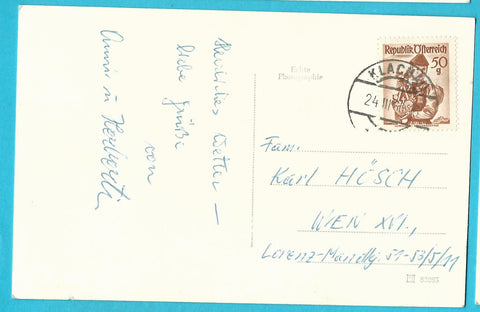 Herrliches Wetter –
liebe Grüße
von
Anni u. Herbert
Echte
Photographie
Republik Österreich
50
g
KLAG
24. III
Fam.
Karl HÖSCH
WIEN XVI.,
Lorenz-Mandlg. 51-53/5/11
83093